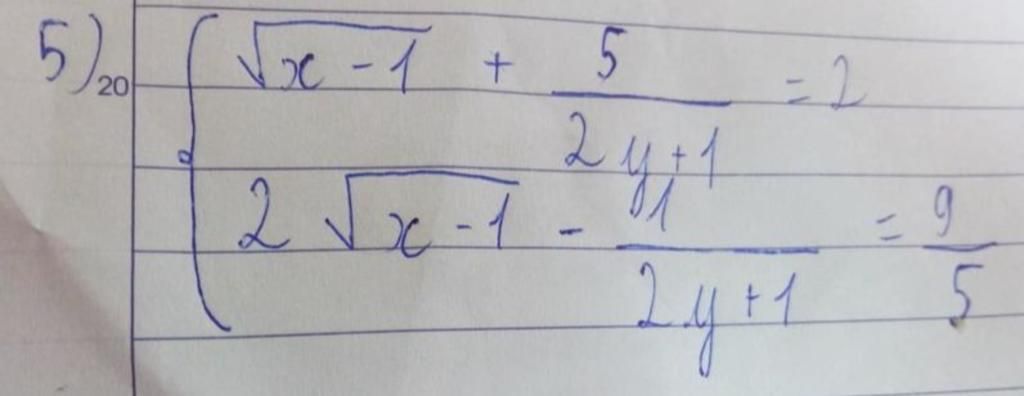 5) 20 { √(x - 1) + 5/(2y + 1) = 2
2 √(x - 1) - 1/(2y + 1) = 9/5